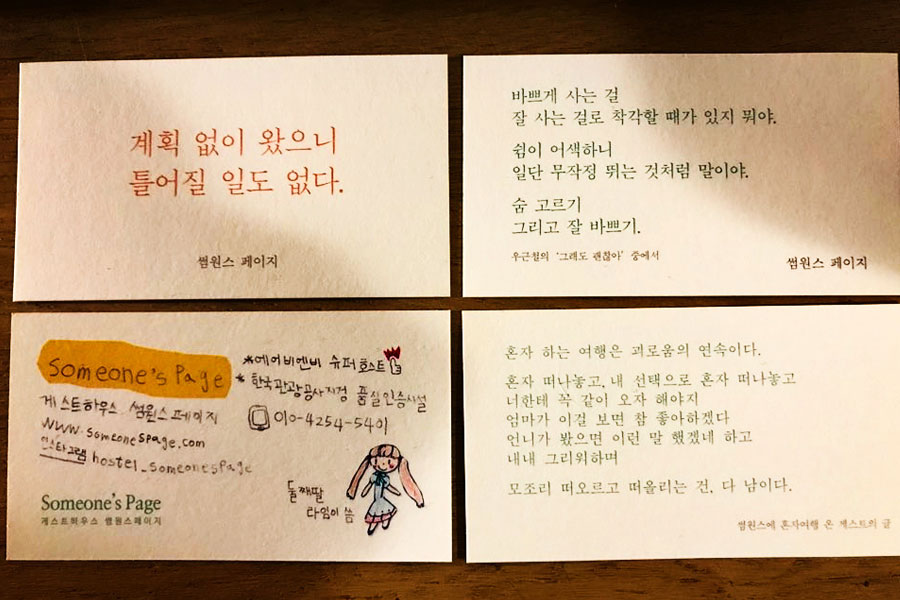 계획 없이 왔으니
틀어질 일도 없다.
썸원스 페이지
바쁘게 사는 걸
잘 사는 걸로 착각할 때가 있지 뭐야.
쉼이 어색하니
일단 무작정 뛰는 것처럼 말이야.
숨 고르기
그리고 잘 바쁘기.
우근철의 '그래도 괜찮아' 중에서
썸원스 페이지
Someone's Page
게스트하우스 썸원스페이지
www.someonespage.com
인스타그램 hostel_someonespage
*에어비엔비 슈퍼호스트
*한국관광공사지정 품질인증시설
010-4254-5401
둘째딸
라임이 씀
Someone's Page
게스트하우스 썸원스페이지
혼자 하는 여행은 괴로움의 연속이다.
혼자 떠나놓고, 내 선택으로 혼자 떠나놓고
너한테 꼭 같이 오자 해야지
엄마가 이걸 보면 참 좋아하겠다
언니가 봤으면 이런 말 했겠네 하고
내내 그리워하며
모조리 떠오르고 떠올리는 건, 다 남이다.
썸원스에 혼자여행 온 게스트의 글